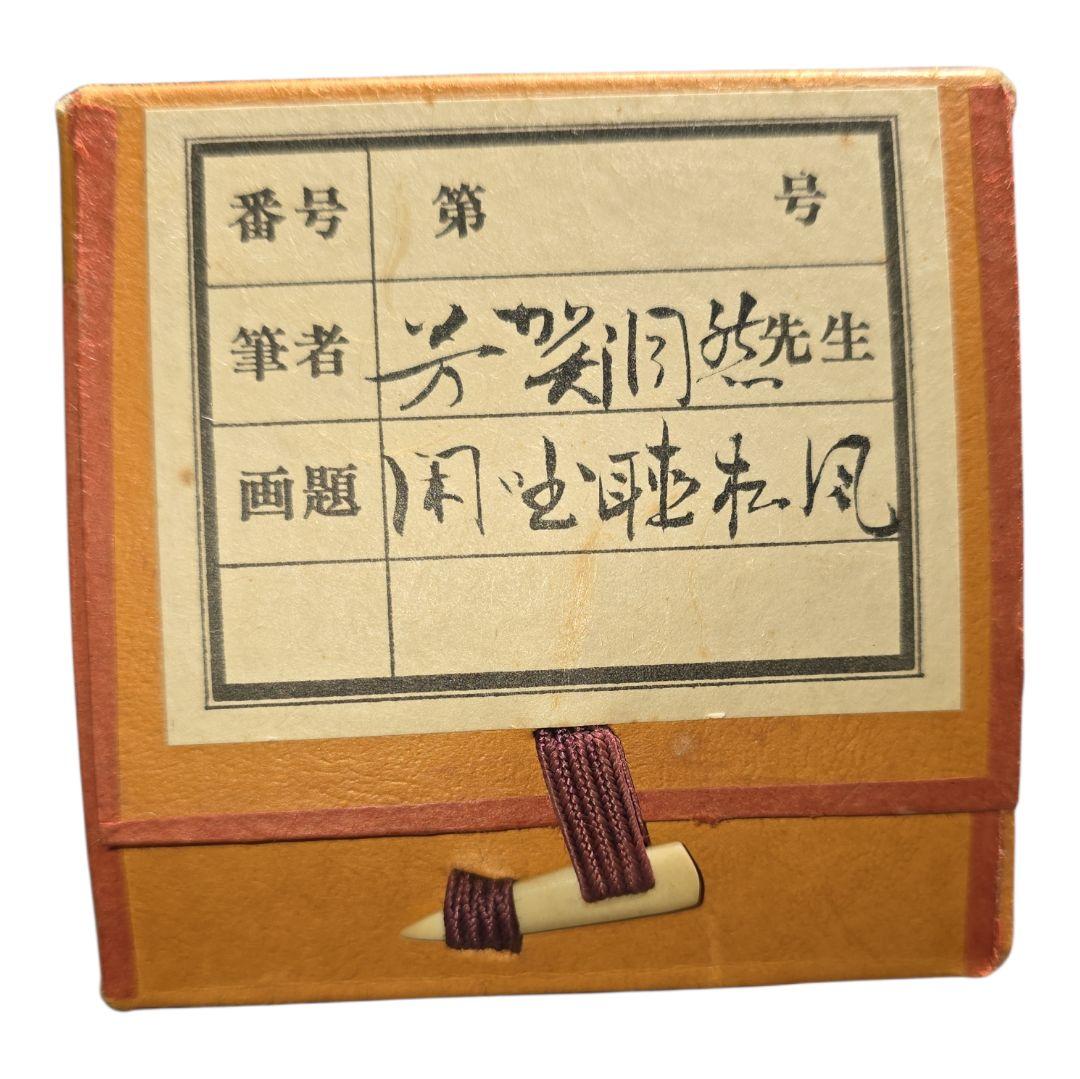 番号 第 号
筆者 芳賀洞然先生
画題 閑坐聴松風